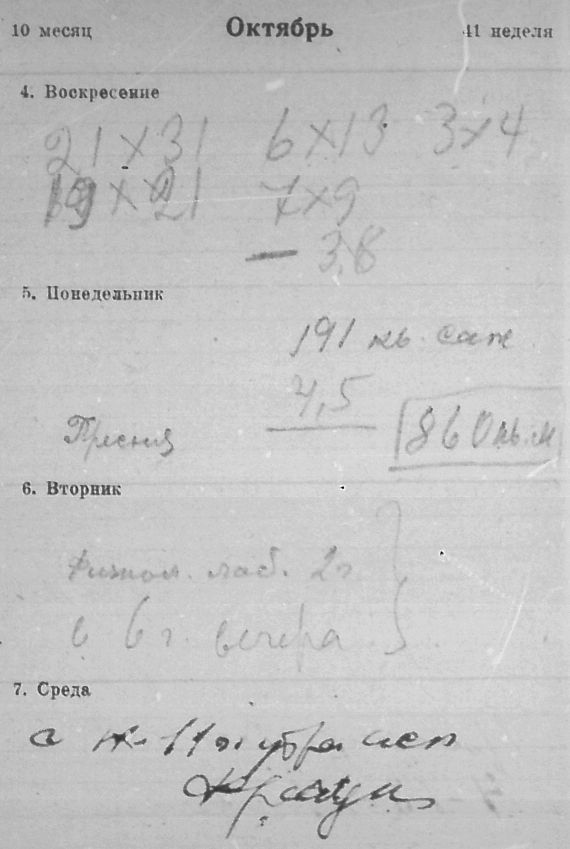 10 месяц Октябрь 41 неделя
4. Воскресение
21×31 6×13 3×4
19×21 7×9
— 3,8
5. Понедельник
191 кв. саж
4,5
Пресня 860 кв. м
6. Вторник
Физиол. лаб. 2 г.
в 6 г. вечера
7. Среда
с утра